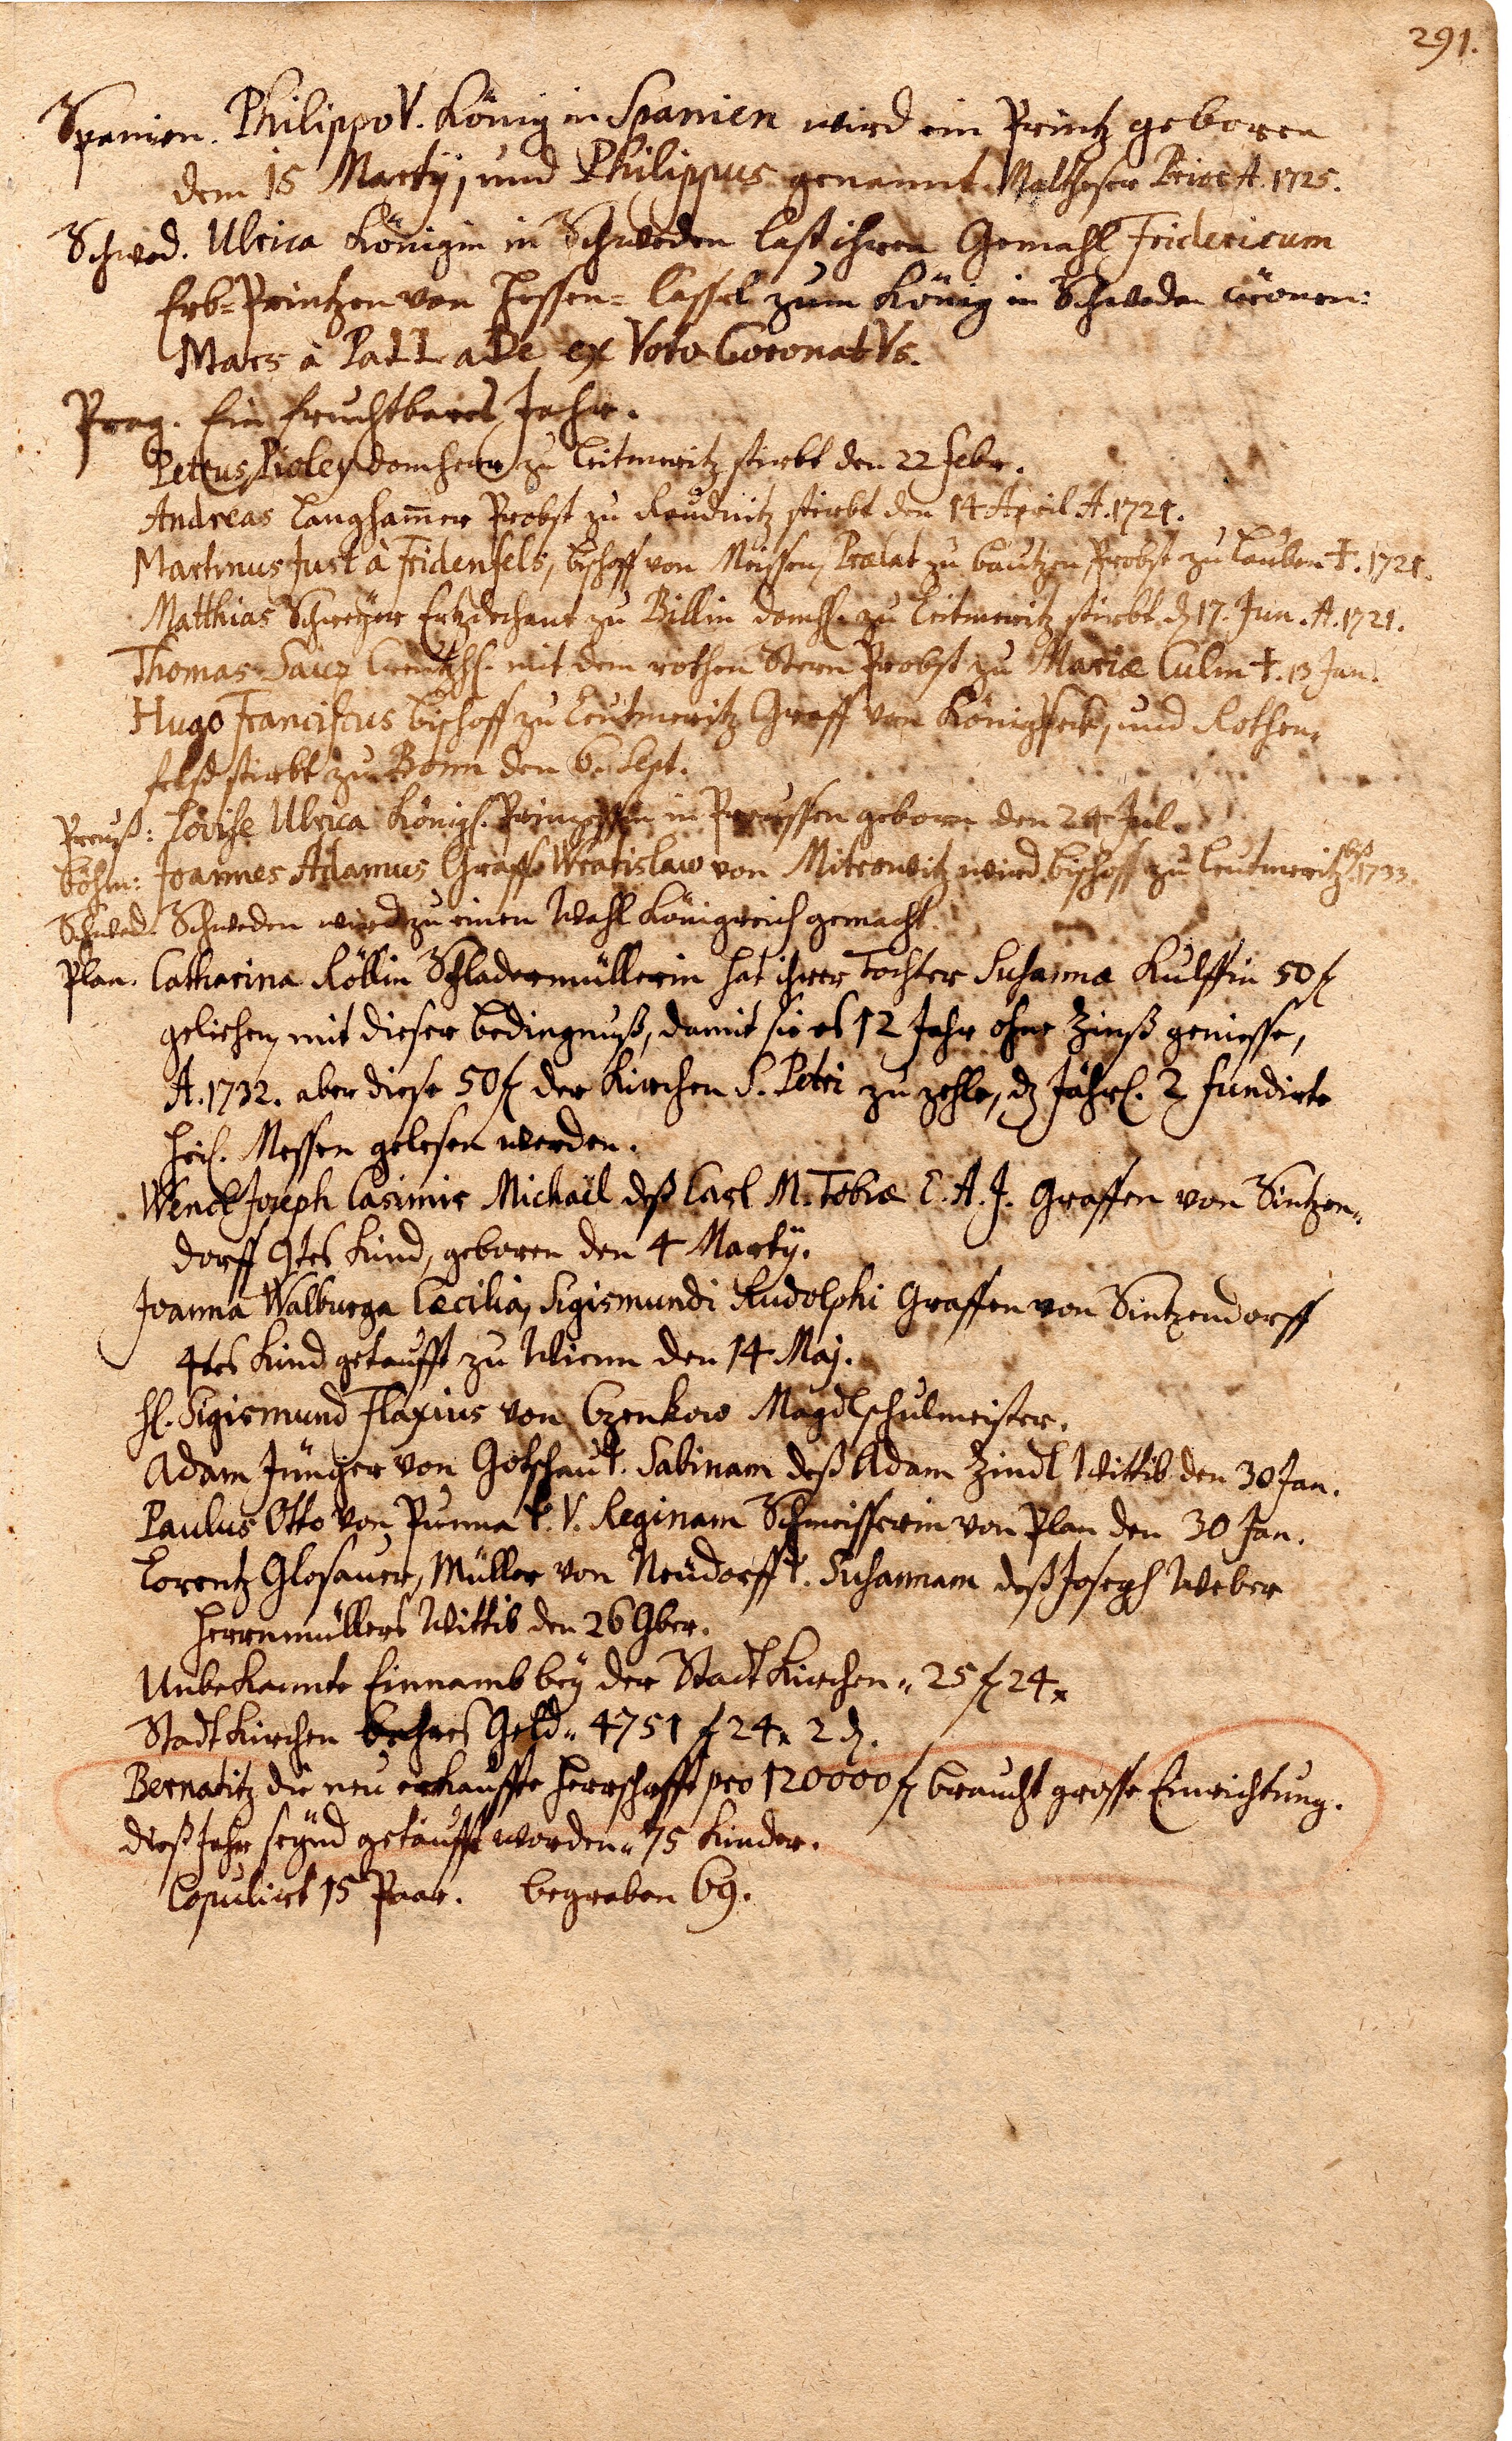 291.
Spanien. Philippo V. König in Spanien wird ein Printz geboren
dem 15 Martÿ, und Philippus genannt. Maltheser Prior A. 1725.
Schwed. Ulrica Königin in Schweden last ihren Gemahl Fridericum
Erb-Printzen von Hessen-Cassel zum König in Schweden crönen:
Mars à PaLLaDe ex Voto CoronatVs.
Prag. Ein fruchtbares Jahr.
Petrus Domherr zu Leitmeritz stirbt den 22 Febr.
Andreas Langham̄er Probst zu Raudnitz stirbt den 14 April A. 1721.
Martinus Just à Fridenfels, Bischoff von Meissen, Prælat zu Bautzen Probst zu Lauben †. 1721.
Matthias Schreÿer Ertzdechant zu Billin Domh. zu Leitmeritz stirbt d 17. Jun. A. 1721.
Thomas Creutzh. mit dem rothen Stern Probst zu Mariæ Culm †. 13 Jan.
Hugo Franciscus Bischoff zu Leutmeritz Graff von Königseck, und Rothen-
felß stirbt zu Bonn den 6. Sept.
Preuß: Lovise Ulrica Königl. Printzessin in Preussen geborn den 24 Jul.
Böhm: Joannes Adamus Graff Wratislaw von Mitrowitz wird Bischoff zu Leutmeritz biß 1733.
Schwed. Schweden wird zu einen Wahl Königreich gemacht.
Plan. Catharina Röllin Schladermüllerin hat ihrer Tochter Susanna Kulffin 50 f
geliehen mit dieser Bedingnuß, damit sie es 12 Jahr ohne Zinß geniesse,
A. 1732. aber diese 50 f der Kirchen S. Petri zu zehle, dz Jährl. 2 fundirte
Heil. Messen gelesen werden.
Wencl Joseph Casimir Michaël deß Carl M. Tobiæ E. A. J. Graffen von Sintzen-
dorff 9tes Kind, geboren den 4 Martÿ.
Joanna Walburga Cæcilia, Sigismundi Rudolphi Graffen von Sintzendorff
4tes Kind getaufft zu Wienn den 14 Maj.
H. Sigismund Flaxius von Czenkow Mägdlschulmeister.
Adam Jünger von Gotschau t. Sabinam deß Adam Zindl Wittib den 30 Jan.
Paulus Otto von Punna t. V. Reginam Schmeisserin von Plan den 30 Jan.
Lorentz Glosauer, Müller von Neüdorff t. Susannam deß Joseph Weber
Herrnmüllers Wittib den 26 9ber.
Unbekannte Einnamb beÿ der Stadt Kirchen. 25 f 24 x
Stadt Kirchen Geld. 4751 f 24 x 2 d.
Bernatitz die neu erkauffte Herrschafft pro 120000 f braucht grosse Einrichtung.
dieß Jahr seÿnd getaufft worden. 75 Kinder.
Copulirt 15 Paar. begraben 69.